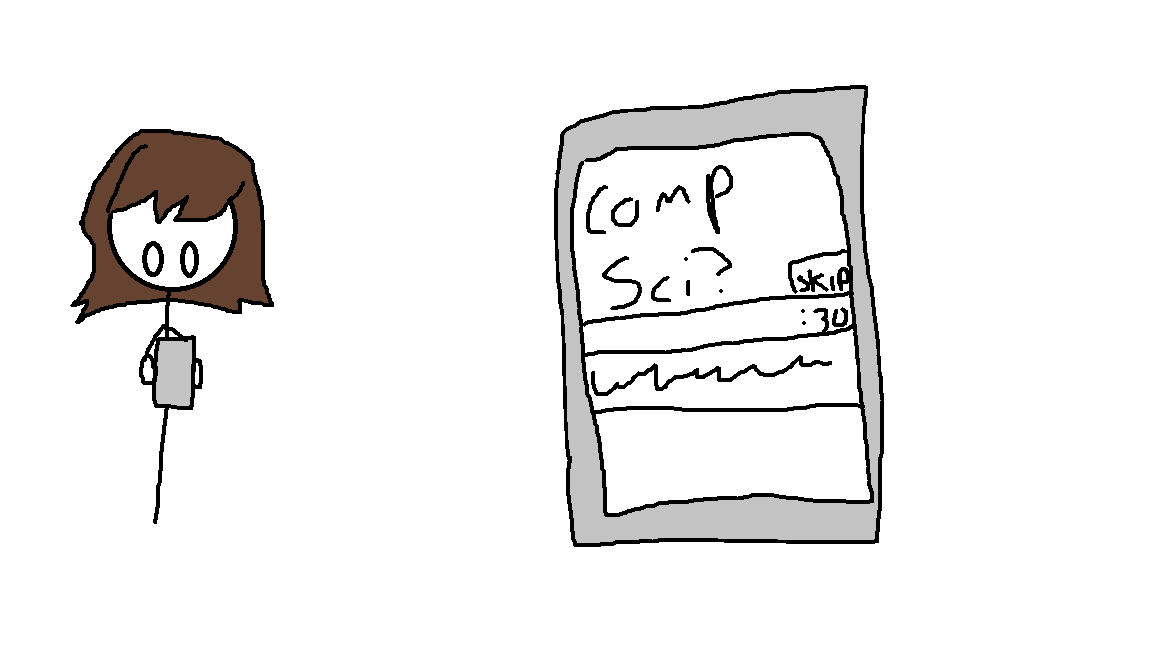 comp
Sci?
skip
:30